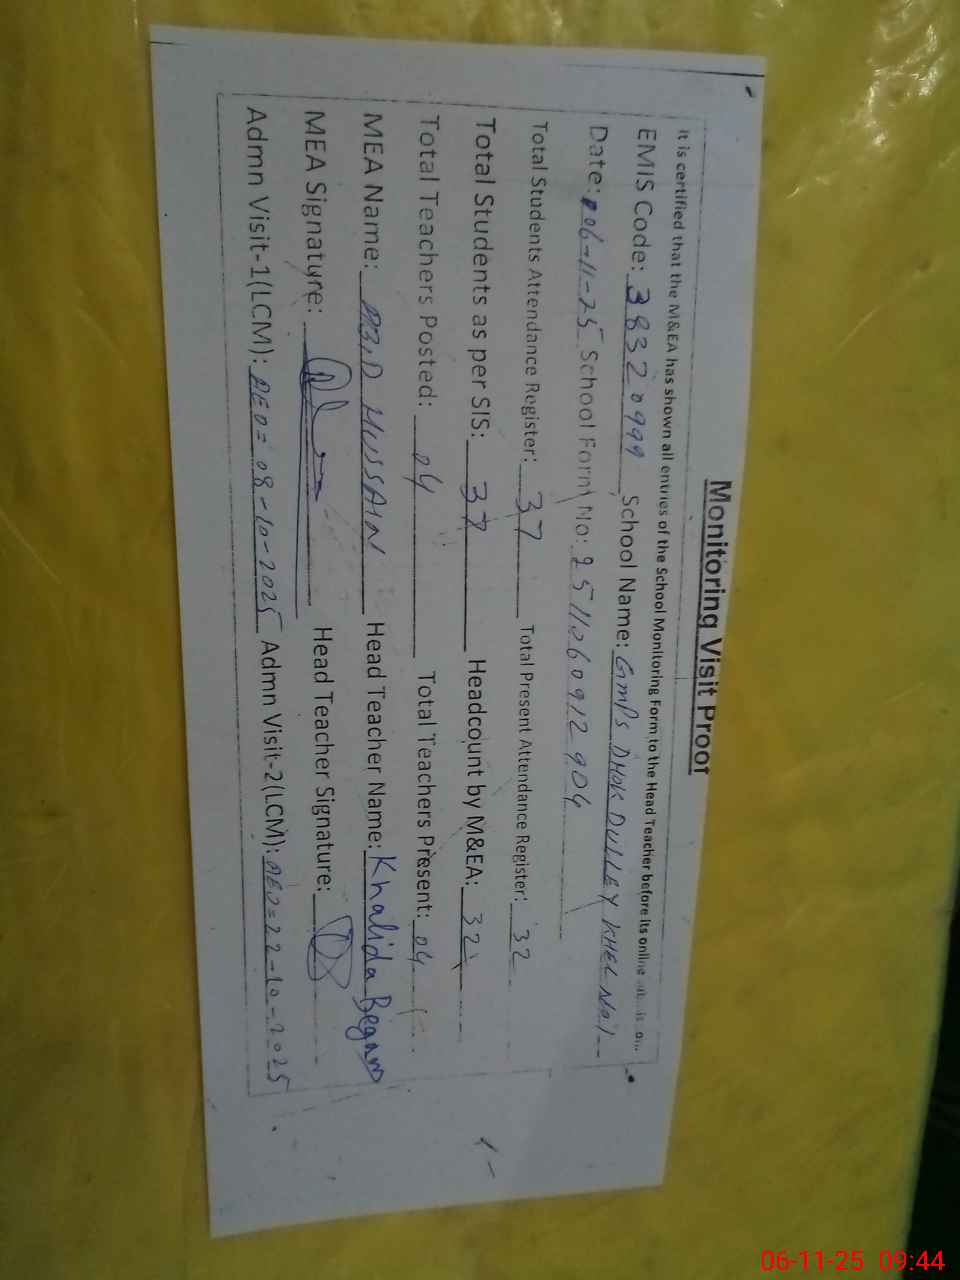 Monitoring Visit Proof
It is certified that the M&EA has shown all entries of the School Monitoring Form to the Head Teacher before its online
EMIS Code: 38320999 School Name: GMPS DHOK DULLEY KHEL NO.1
Date: 06-11-25 School Form No: 2511060912904
Total Students Attendance Register: 37 Total Present Attendance Register: 32
Total Students as per SIS: 37 Headcount by M&EA: 32
Total Teachers Posted: 04 Total Teachers Present: 04
MEA Name: ABID HUSSAIN Head Teacher Name: Khalida Begam
MEA Signature: Head Teacher Signature:
Admn Visit-1(LCM): AEO= 08-10-2025 Admn Visit-2(LCM): AEO=22-10-2025
06-11-25 09:44